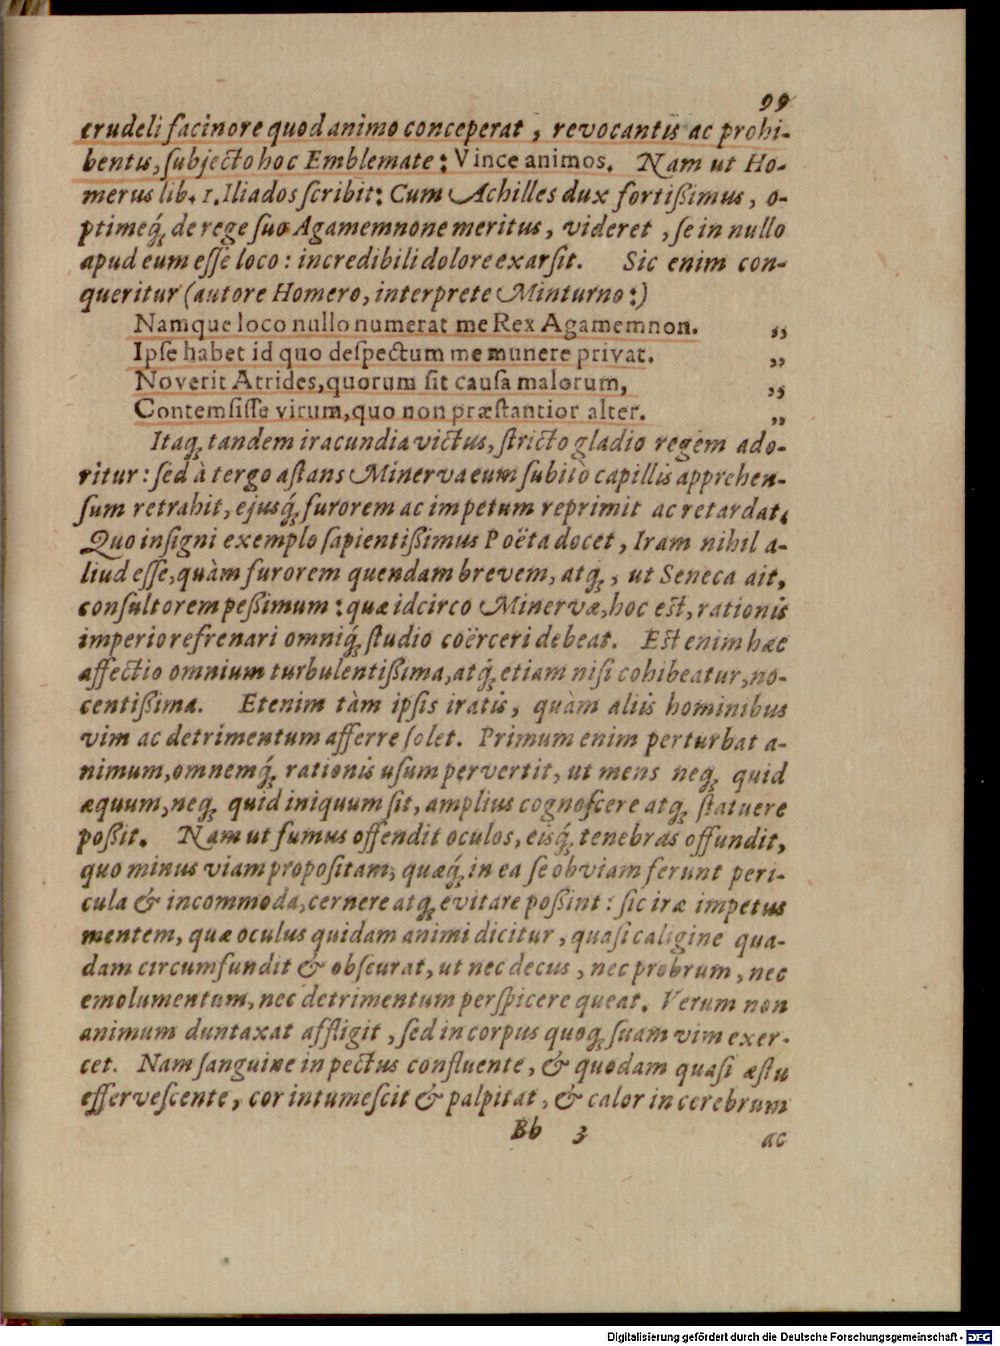 99
crudeli facinore quod animo conceperat, revocantis ac prohi-
bentis, subjecto hoc Emblemate: Vince animos. Nam ut Ho-
merus lib. 1. Iliados scribit: Cum Achilles dux fortißimus, o-
ptimeq́; de rege suo Agamemnone meritus, videret, se in nullo
apud eum esse loco: incredibili dolore exarsit. Sic enim con-
queritur (autore Homero, interprete Minturno:)
Namque loco nullo numerat me Rex Agamemnon. ,,
Ipse habet id quo despectum me munere privat. ,,
Noverit Atrides, quorum sit causa malorum, ,,
Contemsisse virum, quo non præstantior alter. ,,
Itaq; tandem iracundia victus, stricto gladio regem ado-
ritur: sed à tergo astans Minerva eum subitò capillis apprehen-
sum retrahit, ejusq́; furorem ac impetum reprimit ac retardat.
Quo insigni exemplo sapientißimus Poëta docet, Iram nihil a-
liud esse, quàm furorem quendam brevem, atq;, ut Seneca ait,
consultorem peßimum: quæ idcirco Minervæ, hoc est, rationis
imperio refrenari omniq́; studio coërceri debeat. Est enim hæc
affectio omnium turbulentißima, atq́; etiam nisi cohibeatur, no-
centißima. Etenim tàm ipsis iratis, quàm aliis hominibus
vim ac detrimentum afferre solet. Primum enim perturbat a-
nimum, omnemq́; rationis usum pervertit, ut mens neq; quid
æquum, neq; quid iniquum sit, amplius cognoscere atq; statuere
poßit. Nam ut fumus offendit oculos, eisq́; tenebras offundit,
quo minus viam propositam, quæq́; in ea se obviam ferunt peri-
cula & incommoda, cernere atq; evitare poßint: sic iræ impetus
mentem, quæ oculus quidam animi dicitur, quasi caligine qua-
dam circumfundit & obscurat, ut nec decus, nec probrum, nec
emolumentum, nec detrimentum perspicere queat. Verum non
animum duntaxat affligit, sed in corpus quoq; suam vim exer-
cet. Nam sanguine in pectus confluente, & quodam quasi æstu
effervescente, cor intumescit & palpitat, & calor in cerebrum
Bb 3 ac
Digitalisierung gefördert durch die Deutsche Forschungsgemeinschaft - DFG